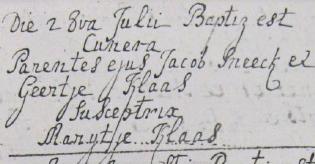 Die 28va Julii Baptiz est
Cunera
Parentes ejus Jacob Sneeck et
Geertje Klaas
Susceptrix
Marytje Klaas